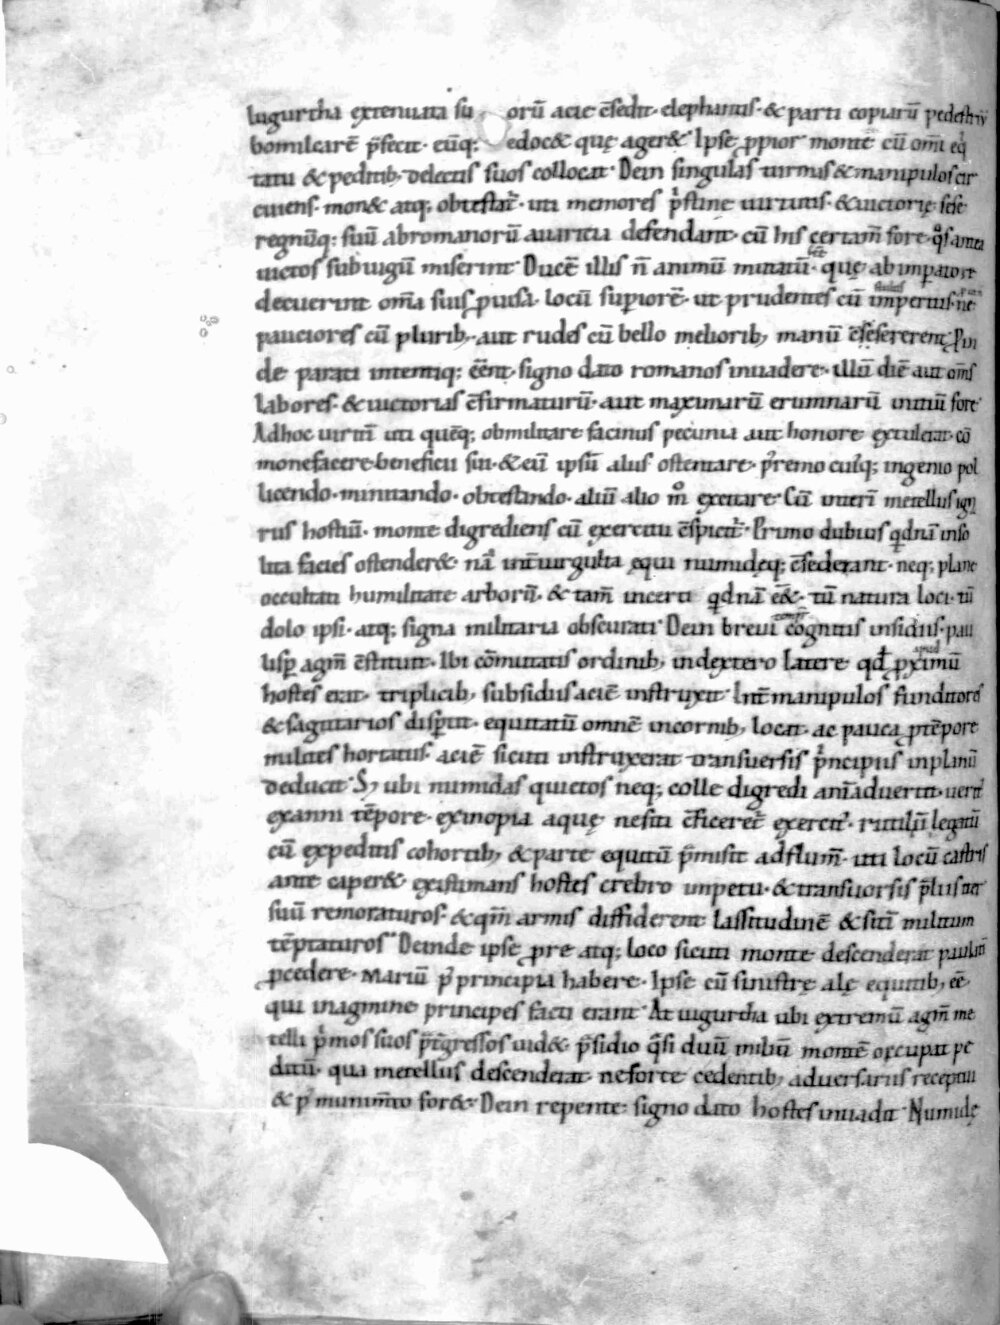 Iugurtha extenuata su orū acie c̄sedit. elephantis. & parti copiarū pedestriū
bomilcarē p̄fecit. eūq; edoc& quę ager& Ipse ꝓpior montē cū om̄i eq
tatu & peditib; delectis suos collocat. Dein singulas turmas & manipulos cir
cuiens. mon& atq; obtestat̄. uti memores p̄stine uirtutis. & uictorię sese
regnūq; suū abromanorū auaritia defendant. cū his certam̄ fore. qͦs antea
uictos sub iugū miserint. Ducē illis n̄ animū mutatū. quę ab imꝑatore
decuerint om̄a suis ꝓuisa. locū suꝑiorē. ut prudentes cū imperitis. ne
pauciores cū plurib; aut rudes cū bello meliorib; manū c̄sererent. Proin
de parati intentiq; eēnt. signo dato romanos inuadere. illū diē aut om̄s
labores. & uictorias c̄firmaturū. aut maximarū erumnarū initiū fore
Adhoc uiritī uti quēq; ob militare facinus pecunia aut honore extulerat. cō
monefacere beneficii sui. & eū ipsū aliis ostentare. P̄remo cuiq; ingenio pol
licendo. minitando. obtestando. aliū alio mͦ excitare. Cū interī metellus igna
rus hostiū. monte digrediens cū exercitu c̄spicit̄. Primo dubius qdnā inso
lita facies ostender&. nā int̄ uirgulta equi numidęq; c̄sederant. neq; plane
occultati humilitate arborū. & tam̄ incerti qdnā eē&. tū natura loci. tū
dolo ipsi. atq; signa militaria obscurati. Dein breui cognitis insidiis. pau
lisꝑ agm̄ c̄stituit. Ibi cōmutatis ordinib; in dextero latere qđ ꝓximū
hostes erat. triplicib; subsidiis aciē instruxit. Int̄ manipulos funditores
& sagittarios disꝑtit. equitatū omnē in cornib; locat. ac pauca ꝓ tēpore
milites hortatus. aciē sicuti instruxerat transuersis p̄ncipiis in planū
deducit. S; ubi numidas quietos neq; colle digredi animaduertit. ueritꝰ
ex anni tēpore. ex inopia aquę ne siti c̄ficeret̄ exercitꝰ. rutiliū legatū
cū expeditis cohortib; & parte equitū p̄misit ad flum̄. uti locū castris
ante caper&. existimans hostes crebro impetu. & transuorsis p̄liis iter
suū remoraturos. & qm̄ armis diffiderent lassitudinē & sitī militum
tēptaturos. Deinde ipse ꝓ re atq; loco sicuti monte descenderat paulatī
ꝓcedere. Mariū p̄ principia habere. Ipse cū sinistrę alę equitib; eē
qui in agmine principes facti erant. At iugurtha ubi extremū agm̄ me
telli p̄mos suos p̄t̄gressos uid&. p̄sidio q̄si duū miliū montē occupat pe
ditū. qua metellus descenderat. ne forte cedentib; aduersariis receptui
& p̄ munim̄to for&. Dein repente: signo dato hostes inuadit. Numidę